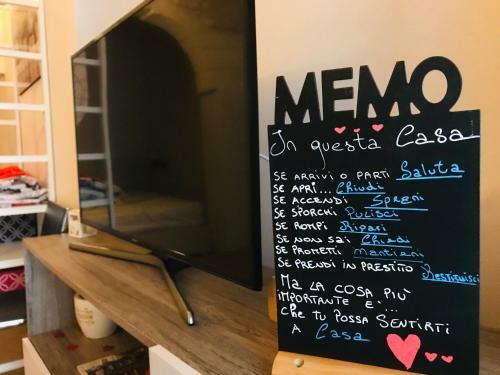 MEMO
In questa Casa
SE ARRIVI O PARTI Saluta
SE APRI... Chiudi
SE ACCENDI Spegni
SE SPORCHI Pulisci
SE ROMPI Ripari
SE NON SAI Chiedi
SE PROMETTI Mantieni
SE PRENDI IN PRESTITO Restituisci
MA LA COSA PIÙ
IMPORTANTE E'...
CHE TU POSSA SENTIRTI
A Casa